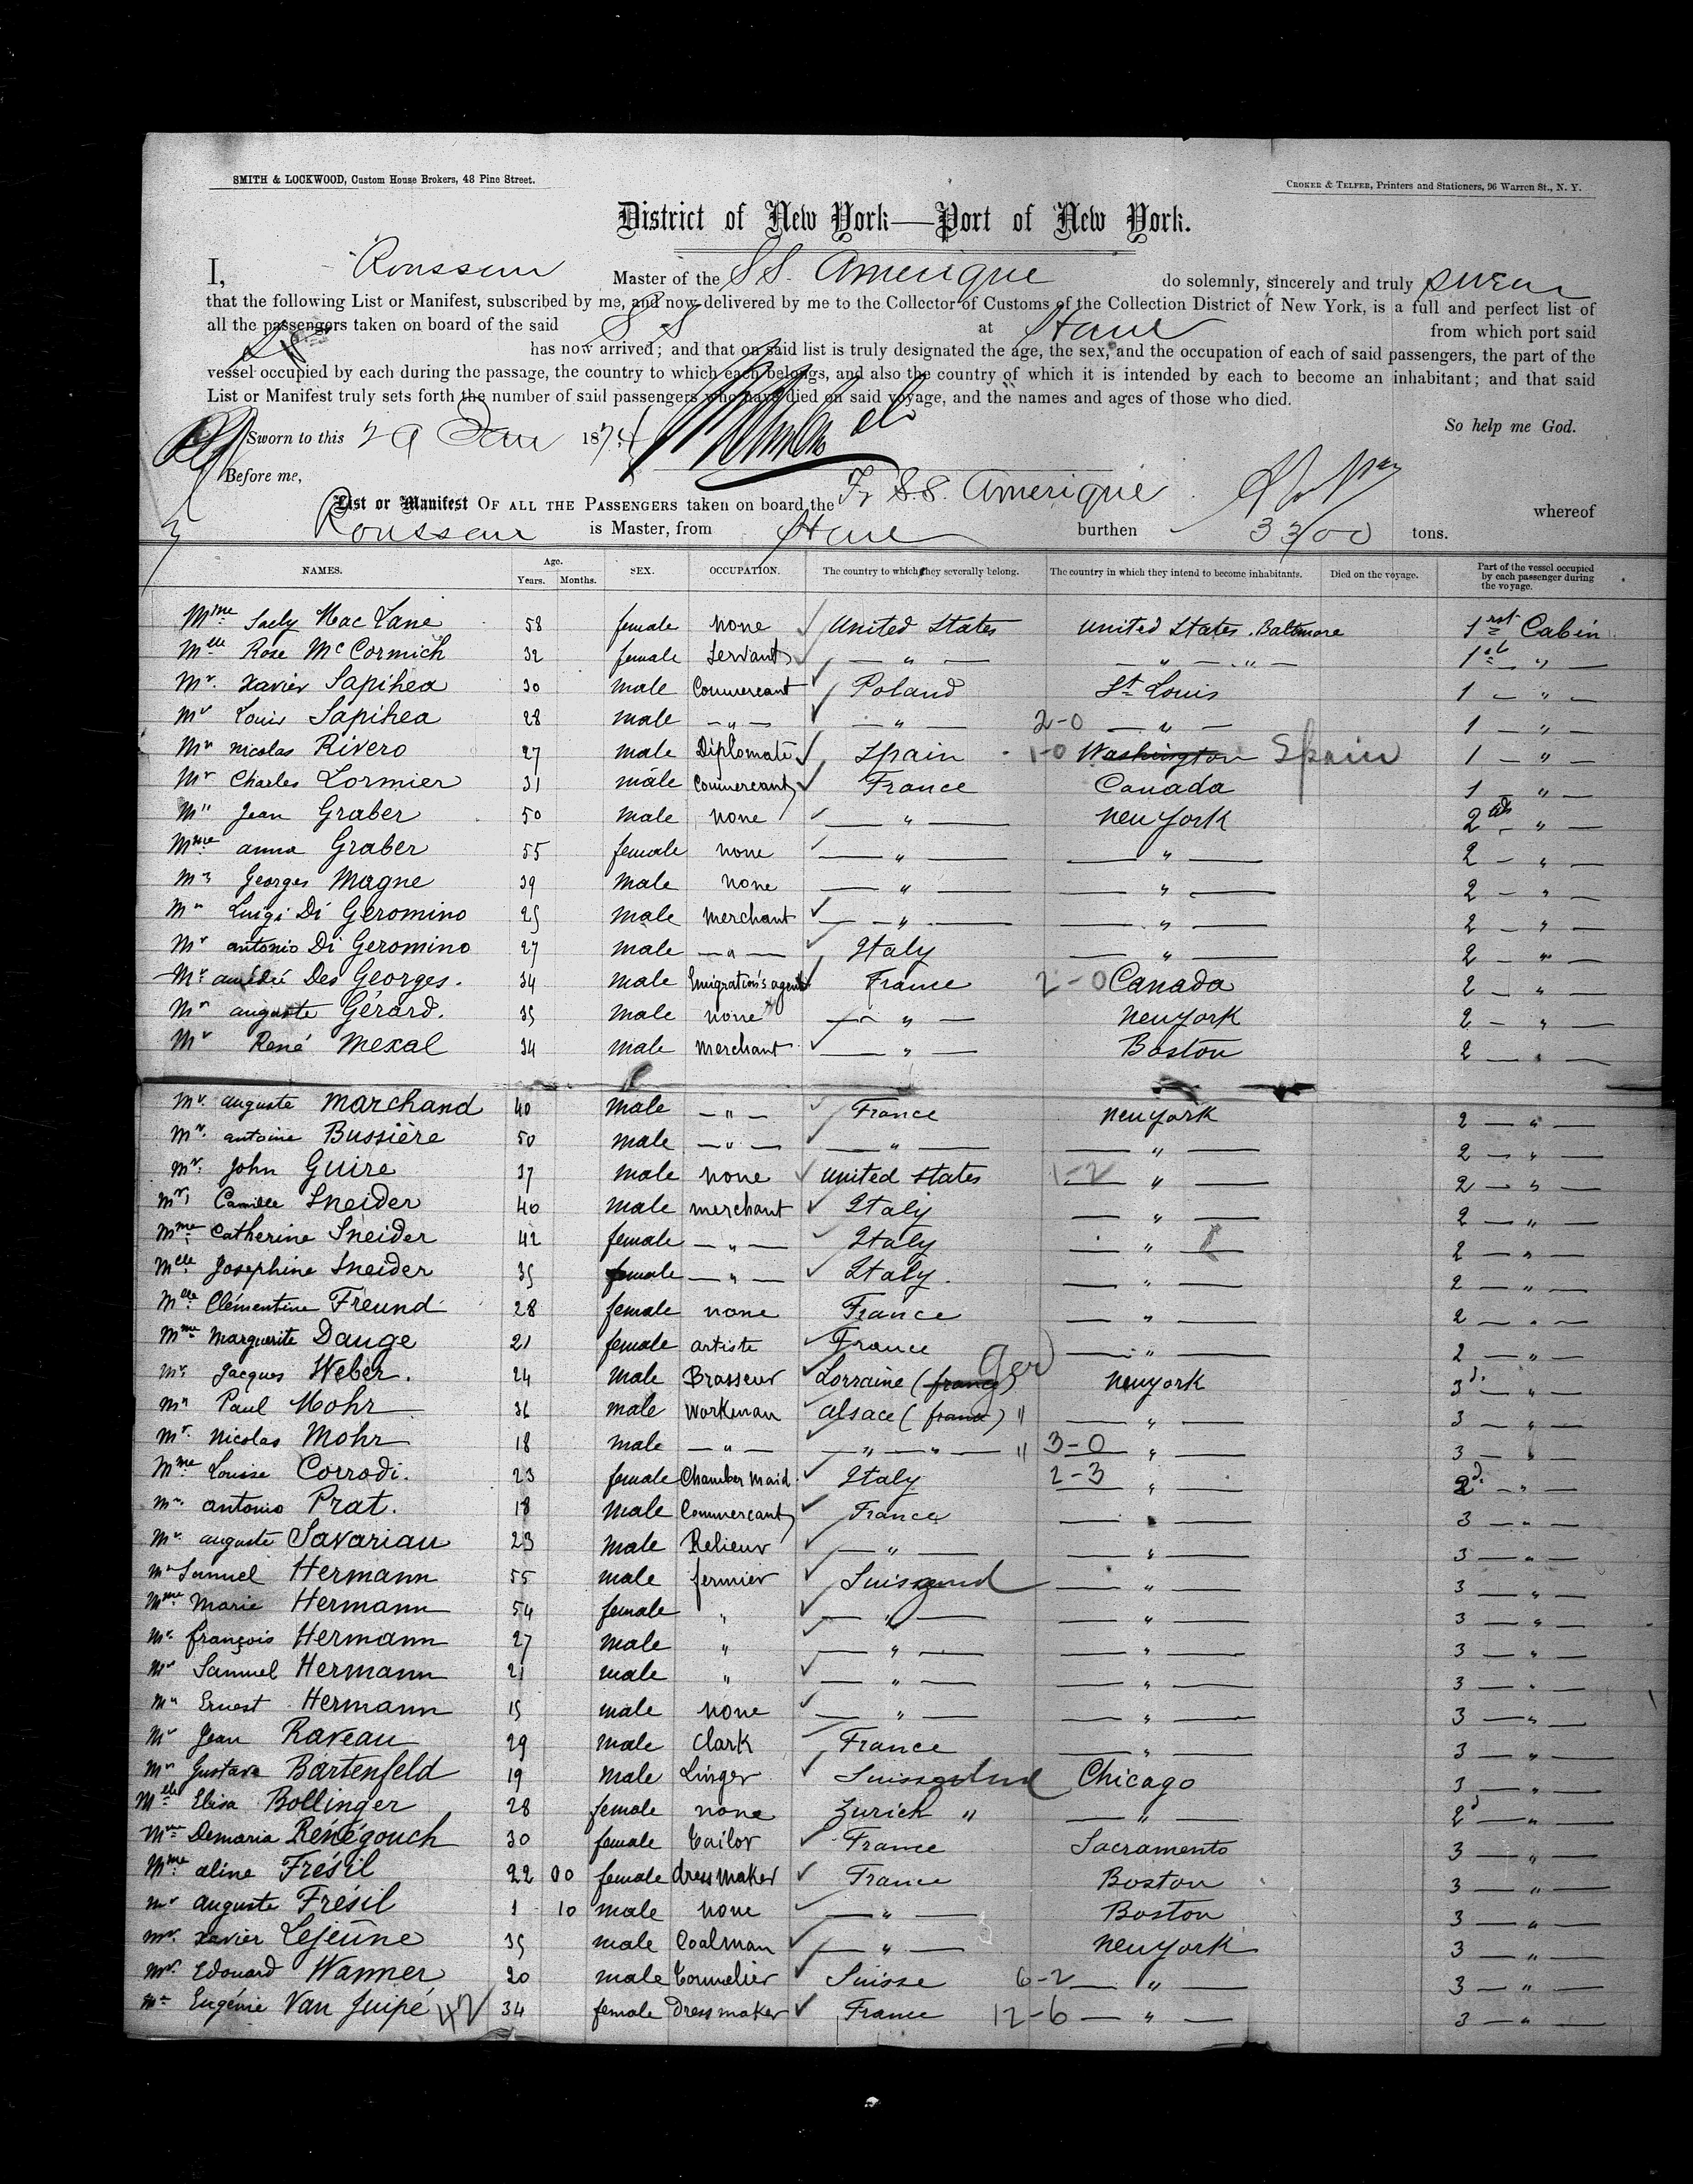 SMITH & LOCKWOOD, Custom House Brokers, 48 Pine Street.
CROKER & TELFER, Printers and Stationers, 96 Warren St., N. Y.
District of New York—Port of New York.
I, Rousseau Master of the S S. Amerique do solemnly, sincerely and truly swear
that the following List or Manifest, subscribed by me, and now delivered by me to the Collector of Customs of the Collection District of New York, is a full and perfect list of
all the passengers taken on board of the said S S at Havre from which port said
SS has now arrived; and that on said list is truly designated the age, the sex, and the occupation of each of said passengers, the part of the
vessel occupied by each during the passage, the country to which each belongs, and also the country of which it is intended by each to become an inhabitant; and that said
List or Manifest truly sets forth the number of said passengers who have died on said voyage, and the names and ages of those who died.
So help me God.
Sworn to this 29 Jan 1874
Before me,
List or Manifest OF ALL THE PASSENGERS taken on board the Fr S.S. Amerique whereof
Rousseau is Master, from Havre burthen 3300 tons.
NAMES. Age. Years. Months. SEX. OCCUPATION. The country to which they severally belong. The country in which they intend to become inhabitants. Died on the voyage. Part of the vessel occupied by each passenger during the voyage.
Mme Saely Mac Lane 58 female none United States United States. Baltimore 1rst Cabin
Melle Rose Mc Cormich 32 female Servant — " — — " — " — 1st — " —
Mr. Xavier Sapihea 30 male Commercant Poland St Louis 1 — " —
Mr Louis Sapihea 28 male — " — — " — 2-0 — " — 1 — " —
Mr Nicolas Rivero 27 male Diplomate Spain 1-0 Washington Spain 1 — " —
Mr Charles Lormier 31 male Commercant France Canada 1 — " —
Mr Jean Graber 50 male none — " — New York 2 — " —
Mme Anna Graber 55 female none — " — — " — 2 — " —
Mr Georges Magne 39 male none — " — — " — 2 — " —
Mr Luigi Di Geromino 25 male merchant — " — — " — 2 — " —
Mr Antonio Di Geromino 27 male — " — Italy — " — 2 — " —
Mr Amédée Des Georges. 34 male Emigration's agent France 2-0 Canada 2 — " —
Mr Auguste Gérard. 35 male none — " — New york 2 — " —
Mr René Mexal 34 male merchant — " — Boston 2 — " —
Mr. Auguste Marchand 40 male — " — France New york 2 — " —
Mr. Antoine Bussière 50 male — " — — " — — " — 2 — " —
Mr. John Guire 37 male none United States 1-2 — " — 2 — " —
Mr Camille Sneider 40 male merchant Italy — " — 2 — " —
Mme Catherine Sneider 42 female — " — Italy — " — 2 — " —
Melle Josephine Sneider 35 female — " — Italy. — " — 2 — " —
Melle Clémentine Freund 28 female none France — " — 2 — " —
Mme Marguerite Dauge 21 female artiste France — " — 2 — " —
Mr Jacques Weber. 24 male Brasseur Lorraine (france) Ger New york 3d. — " —
Mr Paul Mohr 36 male Workman Alsace (france) " — " — 3 — " —
Mr. Nicolas Mohr 18 male — " — — " — " — " 3-0 — " — 3 — " —
Mme Louise Corrodi. 23 female Chamber Maid Italy 2-3 — " — 2d. — " —
Mr. Antonio Prat. 18 male Commercant France — " — 3 — " —
Mr. Auguste Savariau 23 male Relieur — " — — " — 3 — " —
Mr Samuel Hermann 55 male fermier Suisse — " — 3 — " —
Mme Marie Hermann 54 female " — " — — " — 3 — " —
Mr. François Hermann 27 male " — " — — " — 3 — " —
Mr Samuel Hermann 21 male " — " — — " — 3 — " —
Mr Ernest Hermann 15 male none — " — — " — 3 — " —
Mr Jean Raveau 29 male Clark France — " — 3 — " —
Mr Gustave Bartenfeld 19 male Linger Suisse Chicago 3 — " —
Melle Elisa Bollinger 28 female none Zurich " — " — 2d — " —
Mme Demaria Rénégouch 30 female Tailor France Sacramento 3 — " —
Mme Aline Frésil 22 00 female dressmaker France Boston 3 — " —
Mr Auguste Frésil 1 10 male none — " — Boston 3 — " —
Mr. Xavier Lejeûne 35 male Coalman — " — New york 3 — " —
Mr. Edouard Wanner 20 male Tonnelier Suisse 6-2 — " — 3 — " —
Me Eugénie Van Juipé 42 34 female Dressmaker France 12-6 — " — 3 — " —